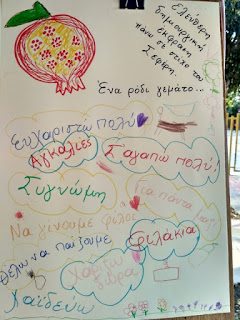 Ελεύθερη
δημιουργική
έκφραση
πάνω σε στίχο του
Σεφέρη.
Ένα ρόδι γεμάτο...
Ευχαριστώ πολύ
Αγκαλιές
Σ'αγαπώ πολύ!
Συγνώμη
Για πάντα
Να γίνουμε φίλοι
Θέλω να παίζουμε
Φιλάκια
Χαρίζω
δώρα
Χαϊδεύω